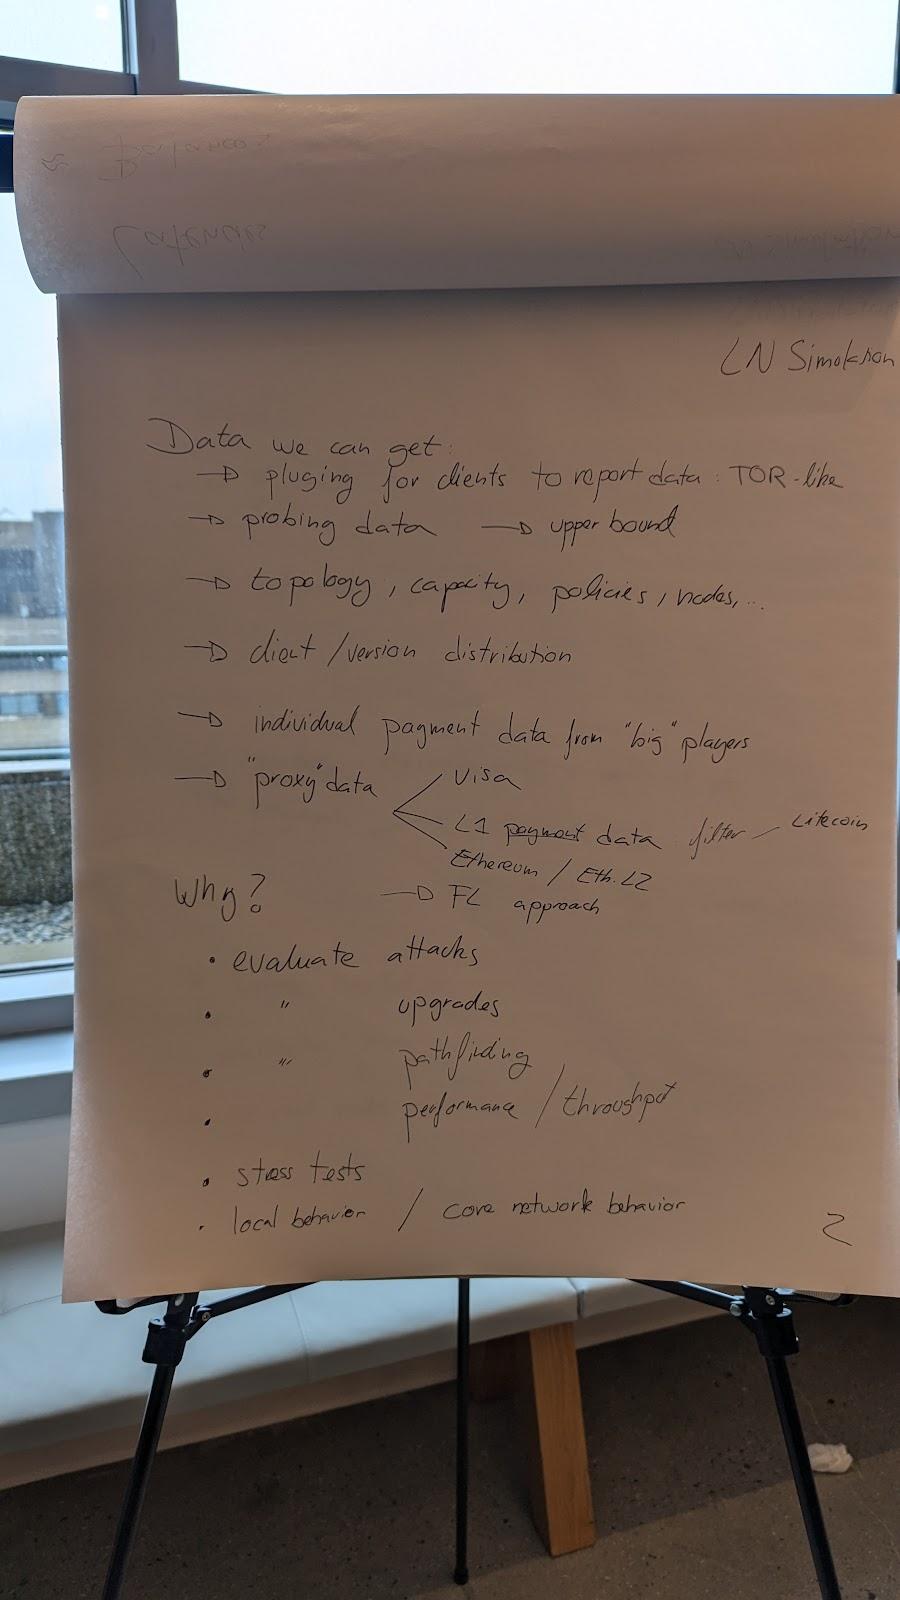 Balances
Latencies
LN Simulation
Data we can get:
→ pluging for clients to report data : TOR-like
→ probing data → upper bound
→ topology, capacity, policies, nodes, ...
→ client / version distribution
→ individual payment data from "big" players
→ "proxy" data
Visa
L1 payment data filter Litecoin
Ethereum / Eth. L2
Why? → FL approach
• evaluate attacks
• " upgrades
• " pathfinding
• performance / throughput
• stress tests
• local behavior / core network behavior
2